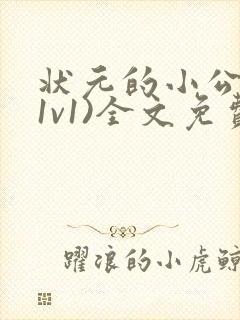 状元的小公
1v1)全文免费
躍浪的小虎鲸